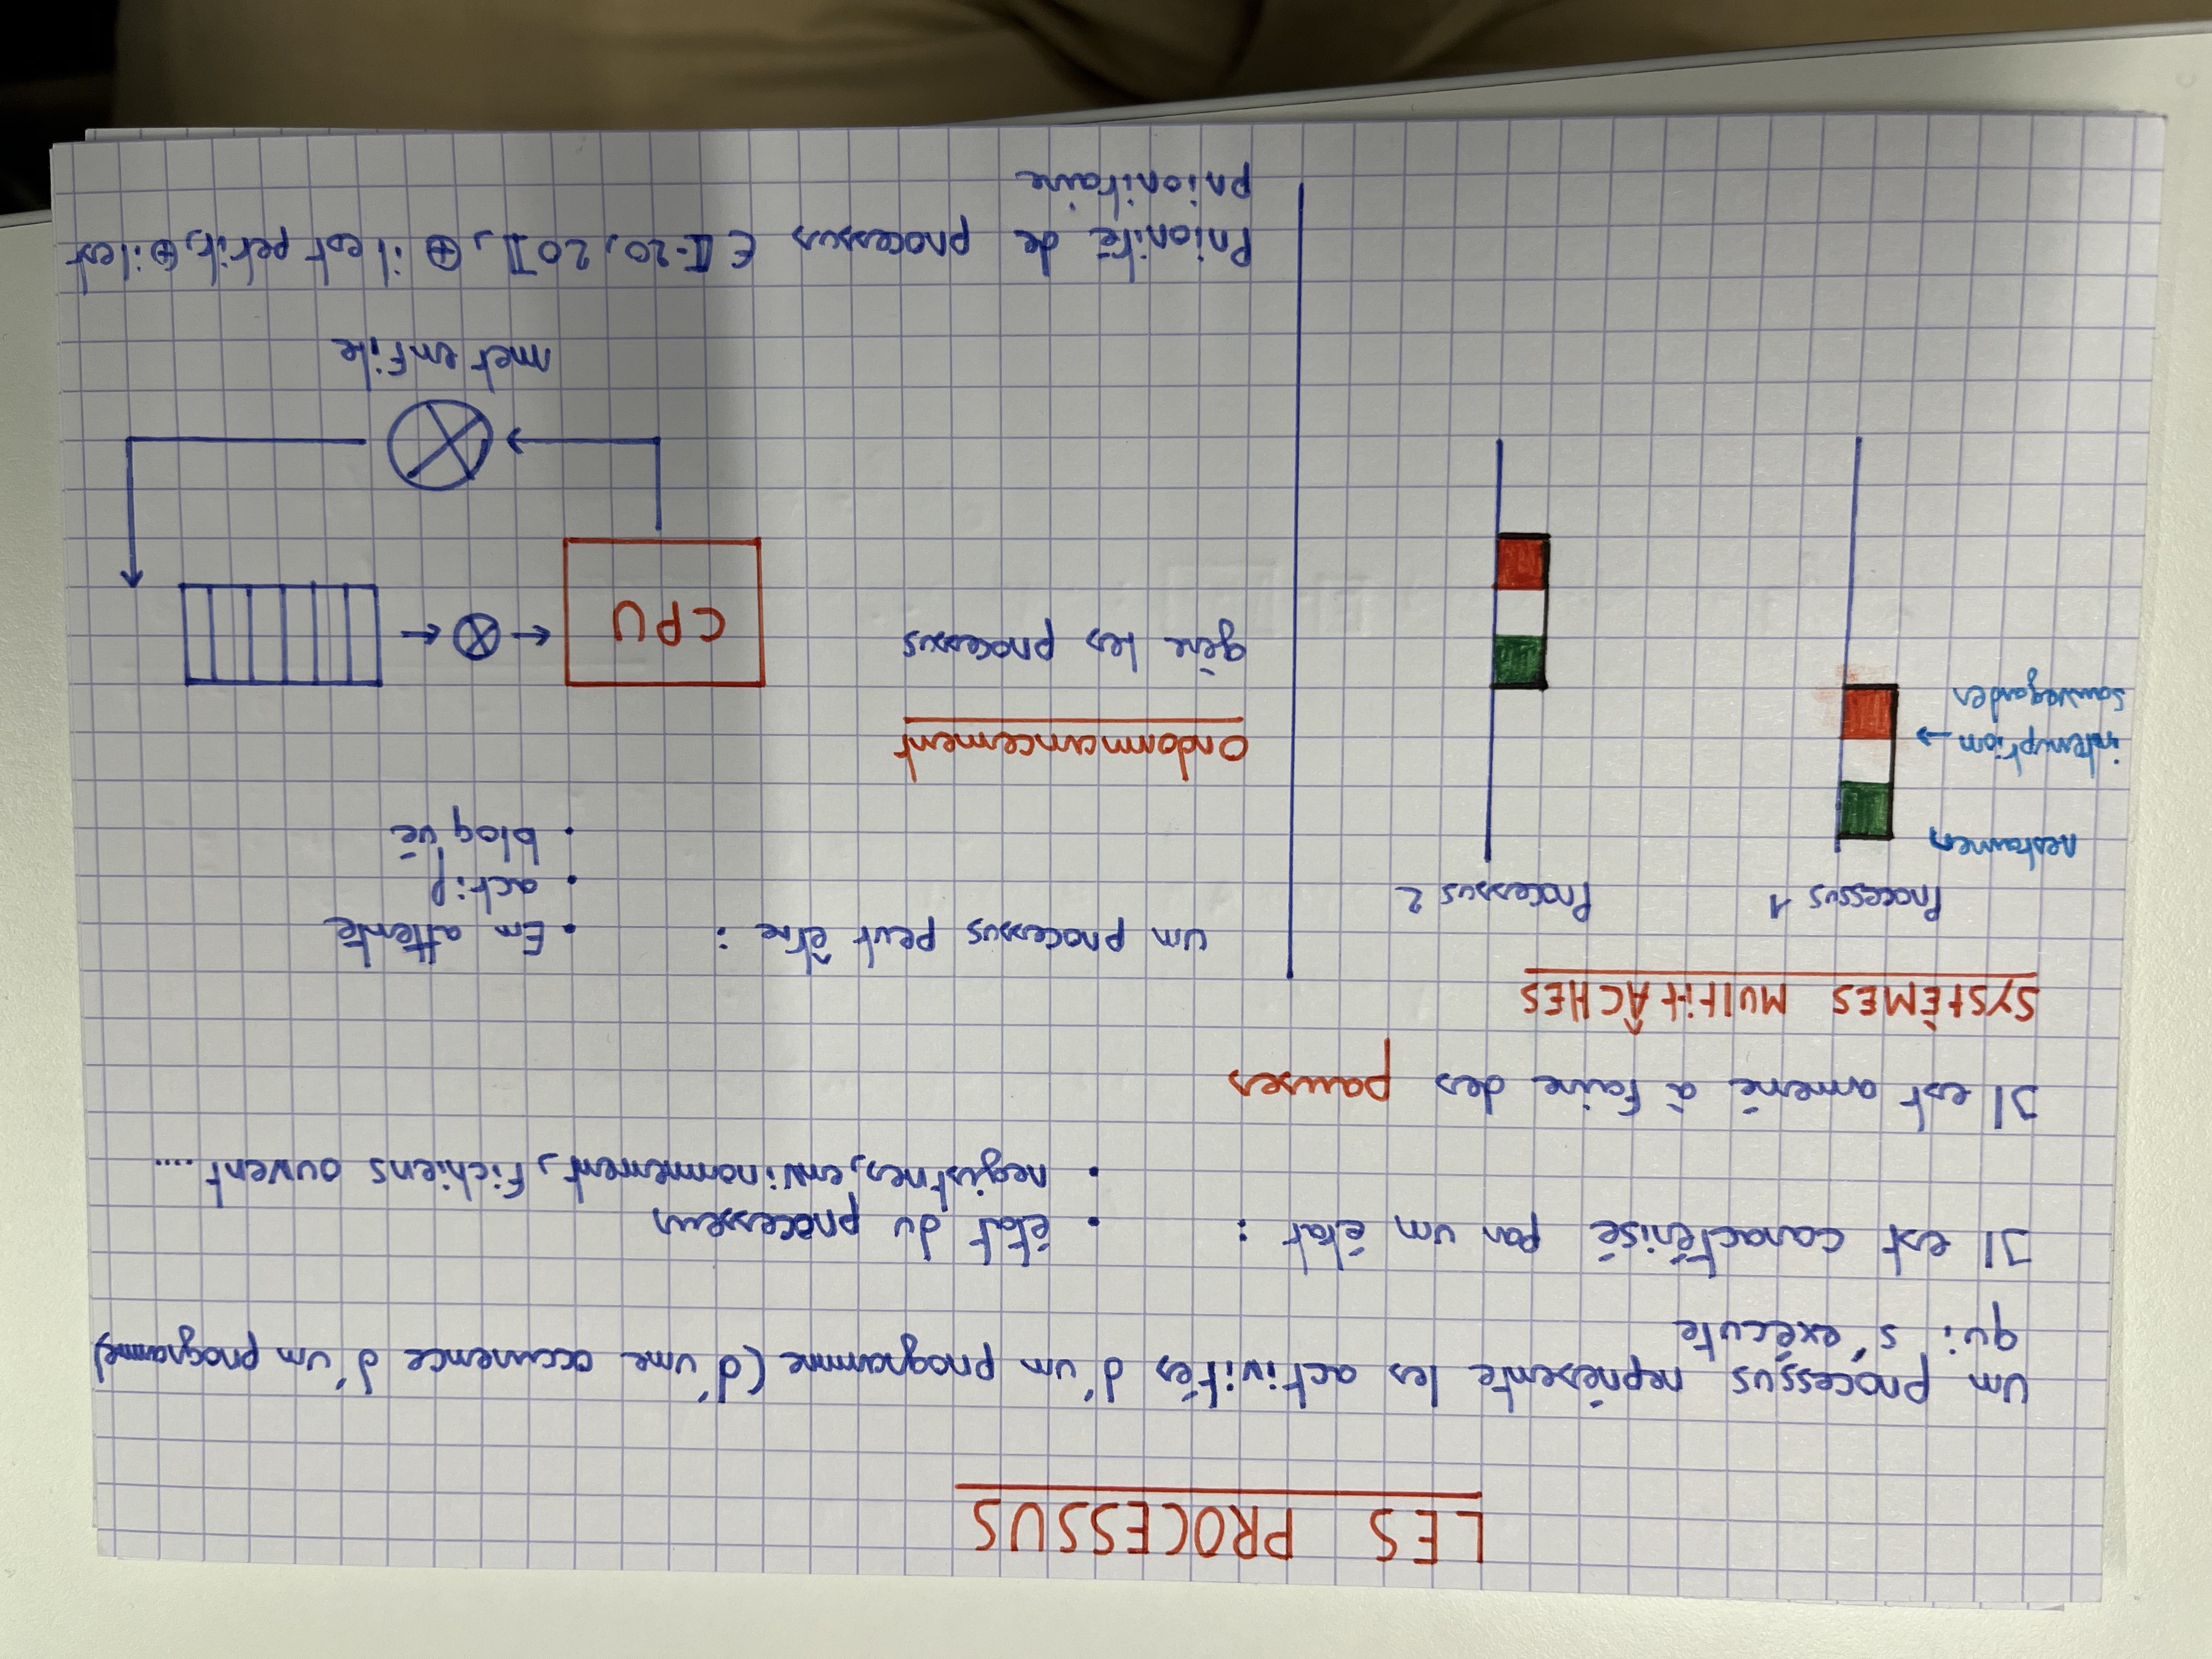 LES PROCESSUS
un processus représente les activités d'un programme (d'une occurence d'un programme)
qui s'exécute
Il est caractérisé par un état :
. état du processeur
. registres, environnement, fichiers ouvert....
Il est amené à faire des pauses
SYSTÈMES MULTITÂCHES
Processus 1
Processus 2
restaurer
interruption →
sauvegarder
un processus peut être :
. En attente
. actif
. bloqué
Ordonnancement
gère les processus
CPU
met en file
Priorité de processus ∈ ⟦-20, 20⟧, ⊕ il est petit, ⊕ il est
prioritaire